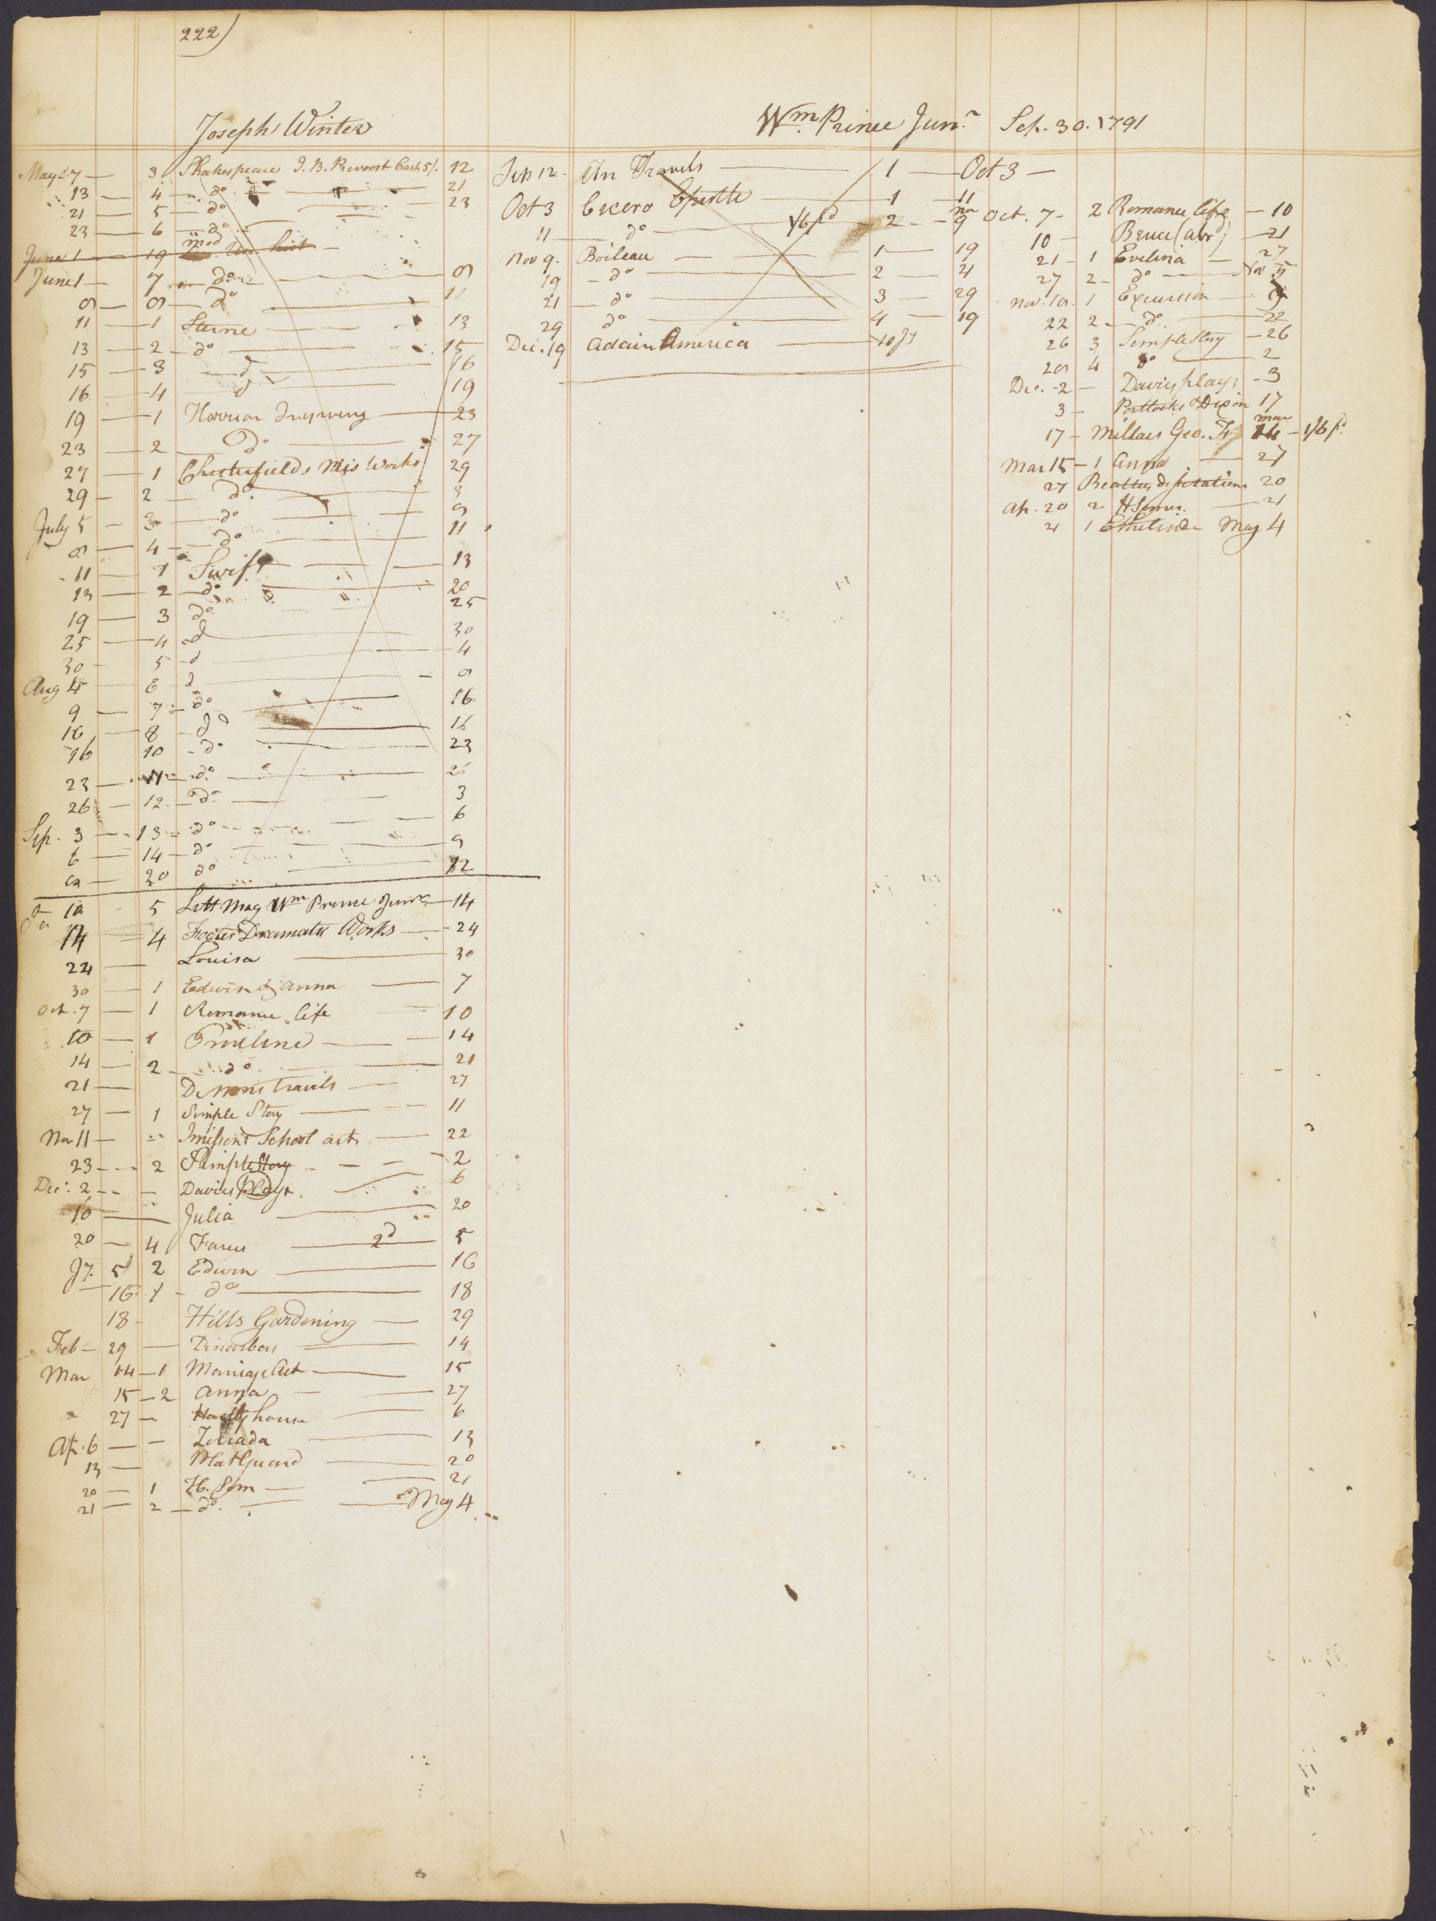 222)
Joseph Winter
May 7 — 3 Shakespeare J. B. Prevoost Cash 5/. 12
13 — 4 — do — 21
21 — 5 — do — 23
23 — 6 — do
June 1 — 19 mod Un hist —
June 1 — 7 — do — 9
9 — 9 — do — 11
11 — 1 Sterne — 13
13 — 2 — do — 15
15 — 3 — d — 16
16 — 4 — d — 19
19 — 1 — 23
23 — 2 — Do — 27
27 — 1 Chesterfields Mis Works 29
29 — 2 — do — 3
July 5 — 3 — do — 9
9 — 4 — do — 11
11 — 1 Swift — 13
13 — 2 — do — 20
19 — 3 do — 25
25 — 4 — d — 30
30 — 5 — d — 4
Aug 4 — 6 — d — 9
9 — 7 — do — 16
16 — 8 — do — 16
16 10 — do — 23
23 — 11 — do — 26
26 — 12 — do — 3
Sep. 3 — 13 — do — 6
6 — 14 — do — 9
9 — 20 do — 12
12 5 Litt Mag Wm Prince Junr — 14
14 — 4 Footes Dramatic Works — 24
24 — Louisa — 30
30 — 1 Edwin & Anna — 7
Oct. 7 — 1 Romance life 10
10 — 1 Emeline — 14
14 — 2 — do — 21
21 — Travels — 27
27 — 1 Simple Story — 11
Nov 11 — School arts — 22
23 — 2 Simple Story — 2
Dec: 2 — Davies Plays. 6
16 — Julia — 20
20 — 4 2d 5
Jy. 5 2 Edwin — 16
16 1 — do — 18
18 — Hills Gardening — 29
Feb — 29 — Dinarbas — 14
Mar 14 — 1 Mariage Act — 15
15 — 2 Anna — 27
27 — Hartly house — 6
Ap. 6 — Zoriada — 13
13 — — 20
20 — 1 H. Sfm — 21
21 — 2 — do. — May 4
Sep 12. An Travels — 1 — Oct 3 —
Oct 3 Cicero Epistle — 1 — 11
11 — do — 1/6 pd 2 — nov 9
Nov 9. Boileau — 1 — 19
19 — do — 2 — 21
21 — do — 3 — 29
29 do — 4 — 19
Dec. 19 Adair America — 10
Wm. Prince Junr. Sep. 30. 1791
Oct. 7 — 2 Romance life — 10
10 — Bruce (abrd) — 21
21 — 1 Evelina — 27
27 2 — do — Nov 5
Nov. 10. 1 Excursion — 9
22 2 — do — 22
26 3 Simple Story — 26
29 4 do — 2
Dec. 2 — Davies plays — 3
3 — Portlocks & Dixon 17
17 — Millars Geo. mar 14 — 1/6 pd
Mar 15 — 1 Anna — 27
27 Beattys disertations 20
Ap. 20 2 H Sfm — 21
21 1 Ethelinde May 4